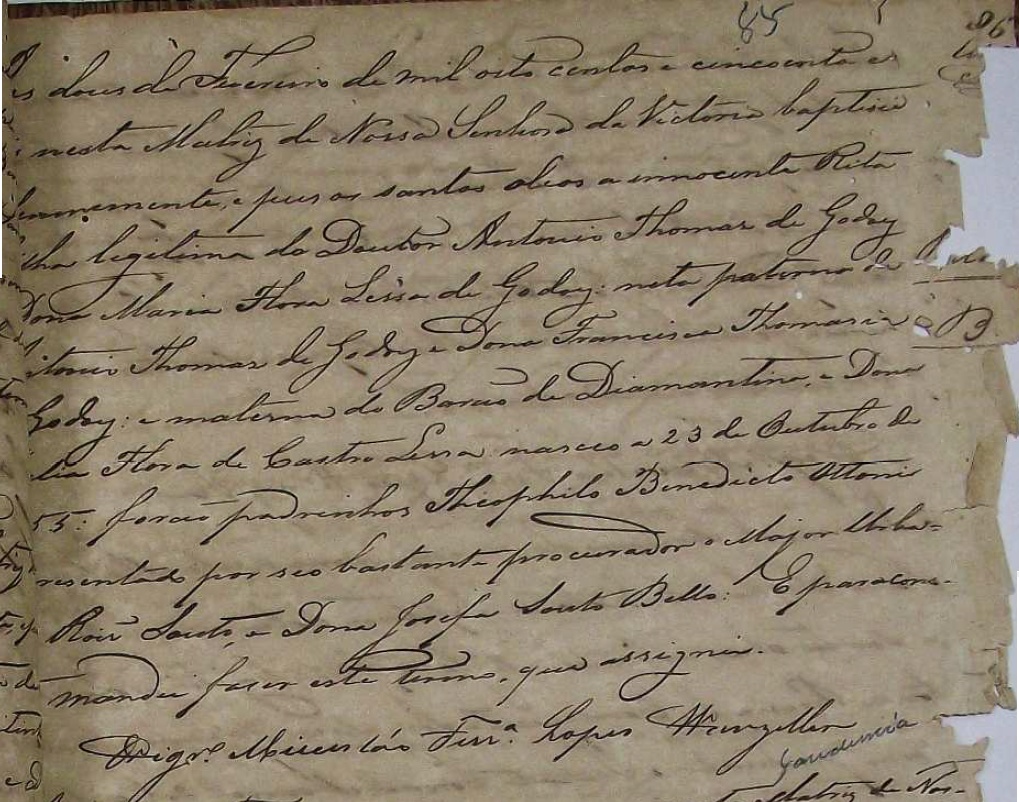 85
86
es doces de Fevereiro de mil oito centos e cincoenta e
nesta Matriz de Nossa Senhora da Victoria baptisei
lemnemente, e pus os santos oleos a innocente Rita
lha legitima do Doutor Antonio Thomas de Godoy
Dona Maria Flora Lessa de Godoy: neta paterna de
ntonio Thomas de Godoy e Dona Francisca Thomasia
Godoy: e materna do Barão de Diamantina, e Dona
lia Flora de Castro Lessa nasceo a 23 de Outubro de
55: forão padrinhos Theophilo Benedicto Ottoni
resentado por seo bastante procurador o Major
Roiz Souto, e Dona Josefa Souto Bello: E para cons-
mandei faser este termo, que assignei.
Ferr.ª Lopes
Gaudencia
Matriz de Nos-